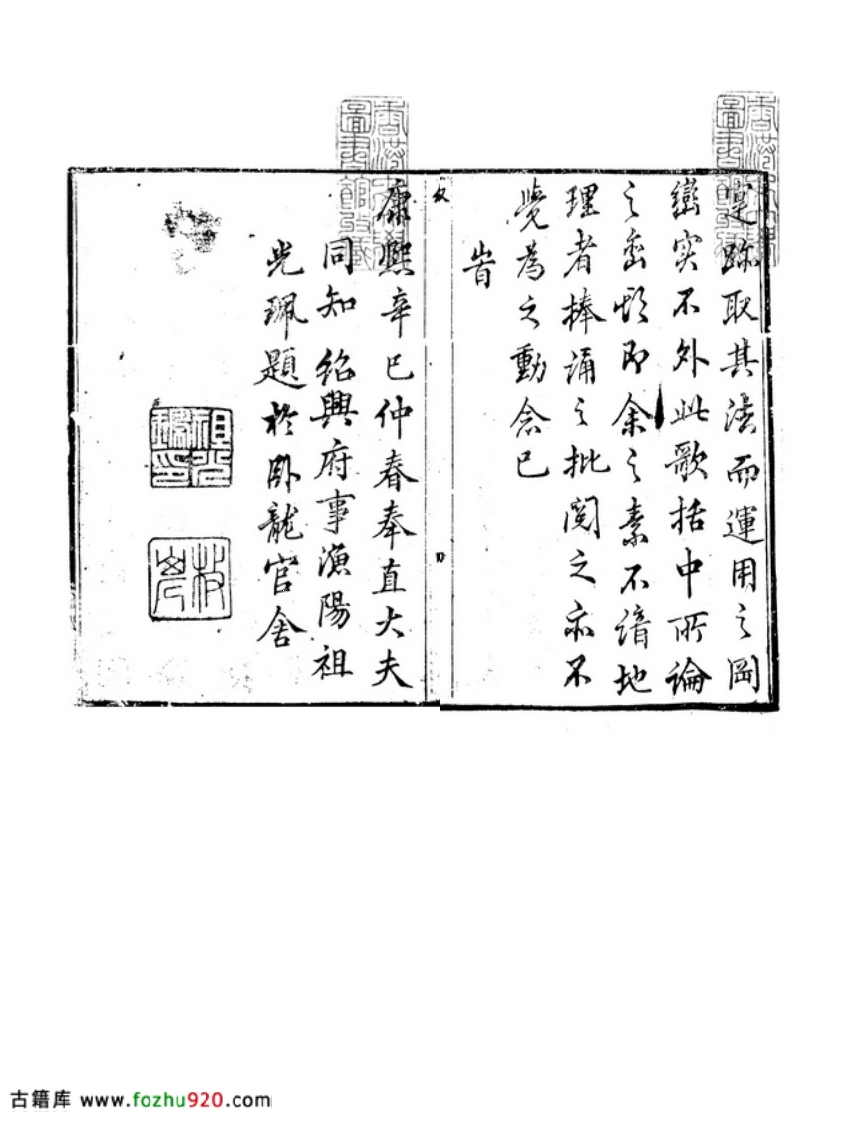 跡取其法而運用之岡
巒实不外此歌括中所論
之也即余之素不諳地
理者捧誦之批閱之亦不
覺為之動念已
旹
康熙辛巳仲春奉直大夫
同知紹興府事漁陽祖
光珮題於卧龍官舍
香港
圖書館收藏
祖光珮印
香港
古籍库 www.fozhu920.com